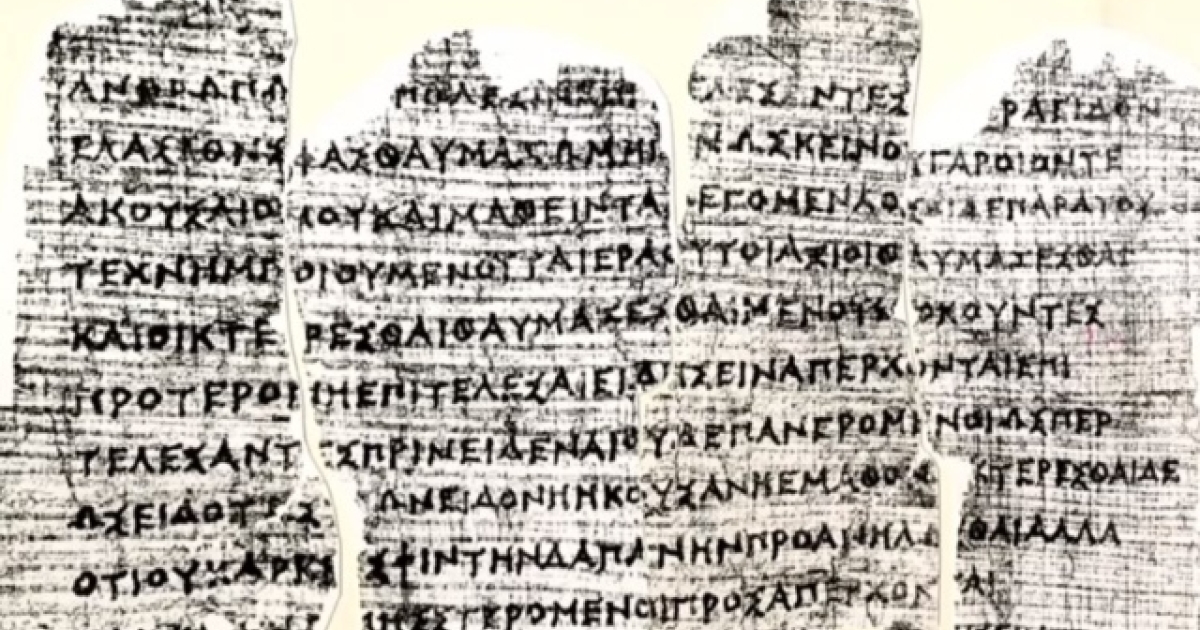 ΑΝΘΡΩΠΩ ΠΟΛΕΣΙΝΕΠΙ ΕΛΕΣ ΝΤΕΣ ΡΑΕΙΔΟΝ
ΕΛΑΣΣΟΝΣ ΦΑΣΘΑΥΜΑΖΩΜΗΓΙ ΝΩΣΚΕΙΝΟ ΥΓΑΡΟΙΟΝΤΕ
ΑΚΟΥΣΑΙΟ ΜΟΥΚΑΙΜΑΘΕΙΝΤΑ ΛΕΓΟΜΕΝΑΟ ΣΟΙΔΕΠΑΡΑΤΟΥ
ΤΕΧΝΗΜΠ ΟΙΟΥΜΕΝΟΥΤΑΙΕΡΑΟ ΥΤΟΙΑΞΙΟΙΘ ΑΥΜΑΖΕΣΘΑΙ
ΚΑΙΟΙΚΤΕ ΡΕΣΘΑΙΘΑΥΜΑΖΕΣΘΑΙΜΕΝΟΤΙ ΔΟΚΟΥΝΤΕΣ
ΠΡΟΤΕΡΟΝΗΕΠΙΤΕΛΕΣΑΙΕΙΔΗΣΕΙΝΑΠΕΡΧΟΝΤΑΙΕΠΙ
ΤΕΛΕΣΑΝΤΕΣΠΡΙΝΕΙΔΕΝΑΙΟΥΔΕΠΑΝΕΡΟΜΕΝΟΙΩΣΠΕΡ
ΩΣΕΙΔΟΤΕΣ ΩΝΕΙΔΟΝΗΗΚΟΥΣΑΝΗΕΜΑΘΟΝ ΚΤΕΡΕΣΘΑΙΔΕ
ΟΤΙΟΥΚΑΡΚΕΙ ΣΦΙΝΤΗΝΔΑΠΑΝΗΝΠΡΟΑΝΗΛΩ ΣΘΑΙΑΛΛΑ
ΜΗΣΣΤΕΡΟΜΕΝΟΙΠΡΟΣΑΠΕΡΧΟΝ ΤΑΙ